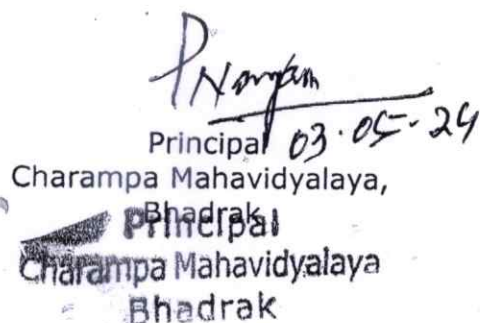 Principal 03.05.24
Charampa Mahavidyalaya,
Bhadrak
Principal
Charampa Mahavidyalaya
Bhadrak